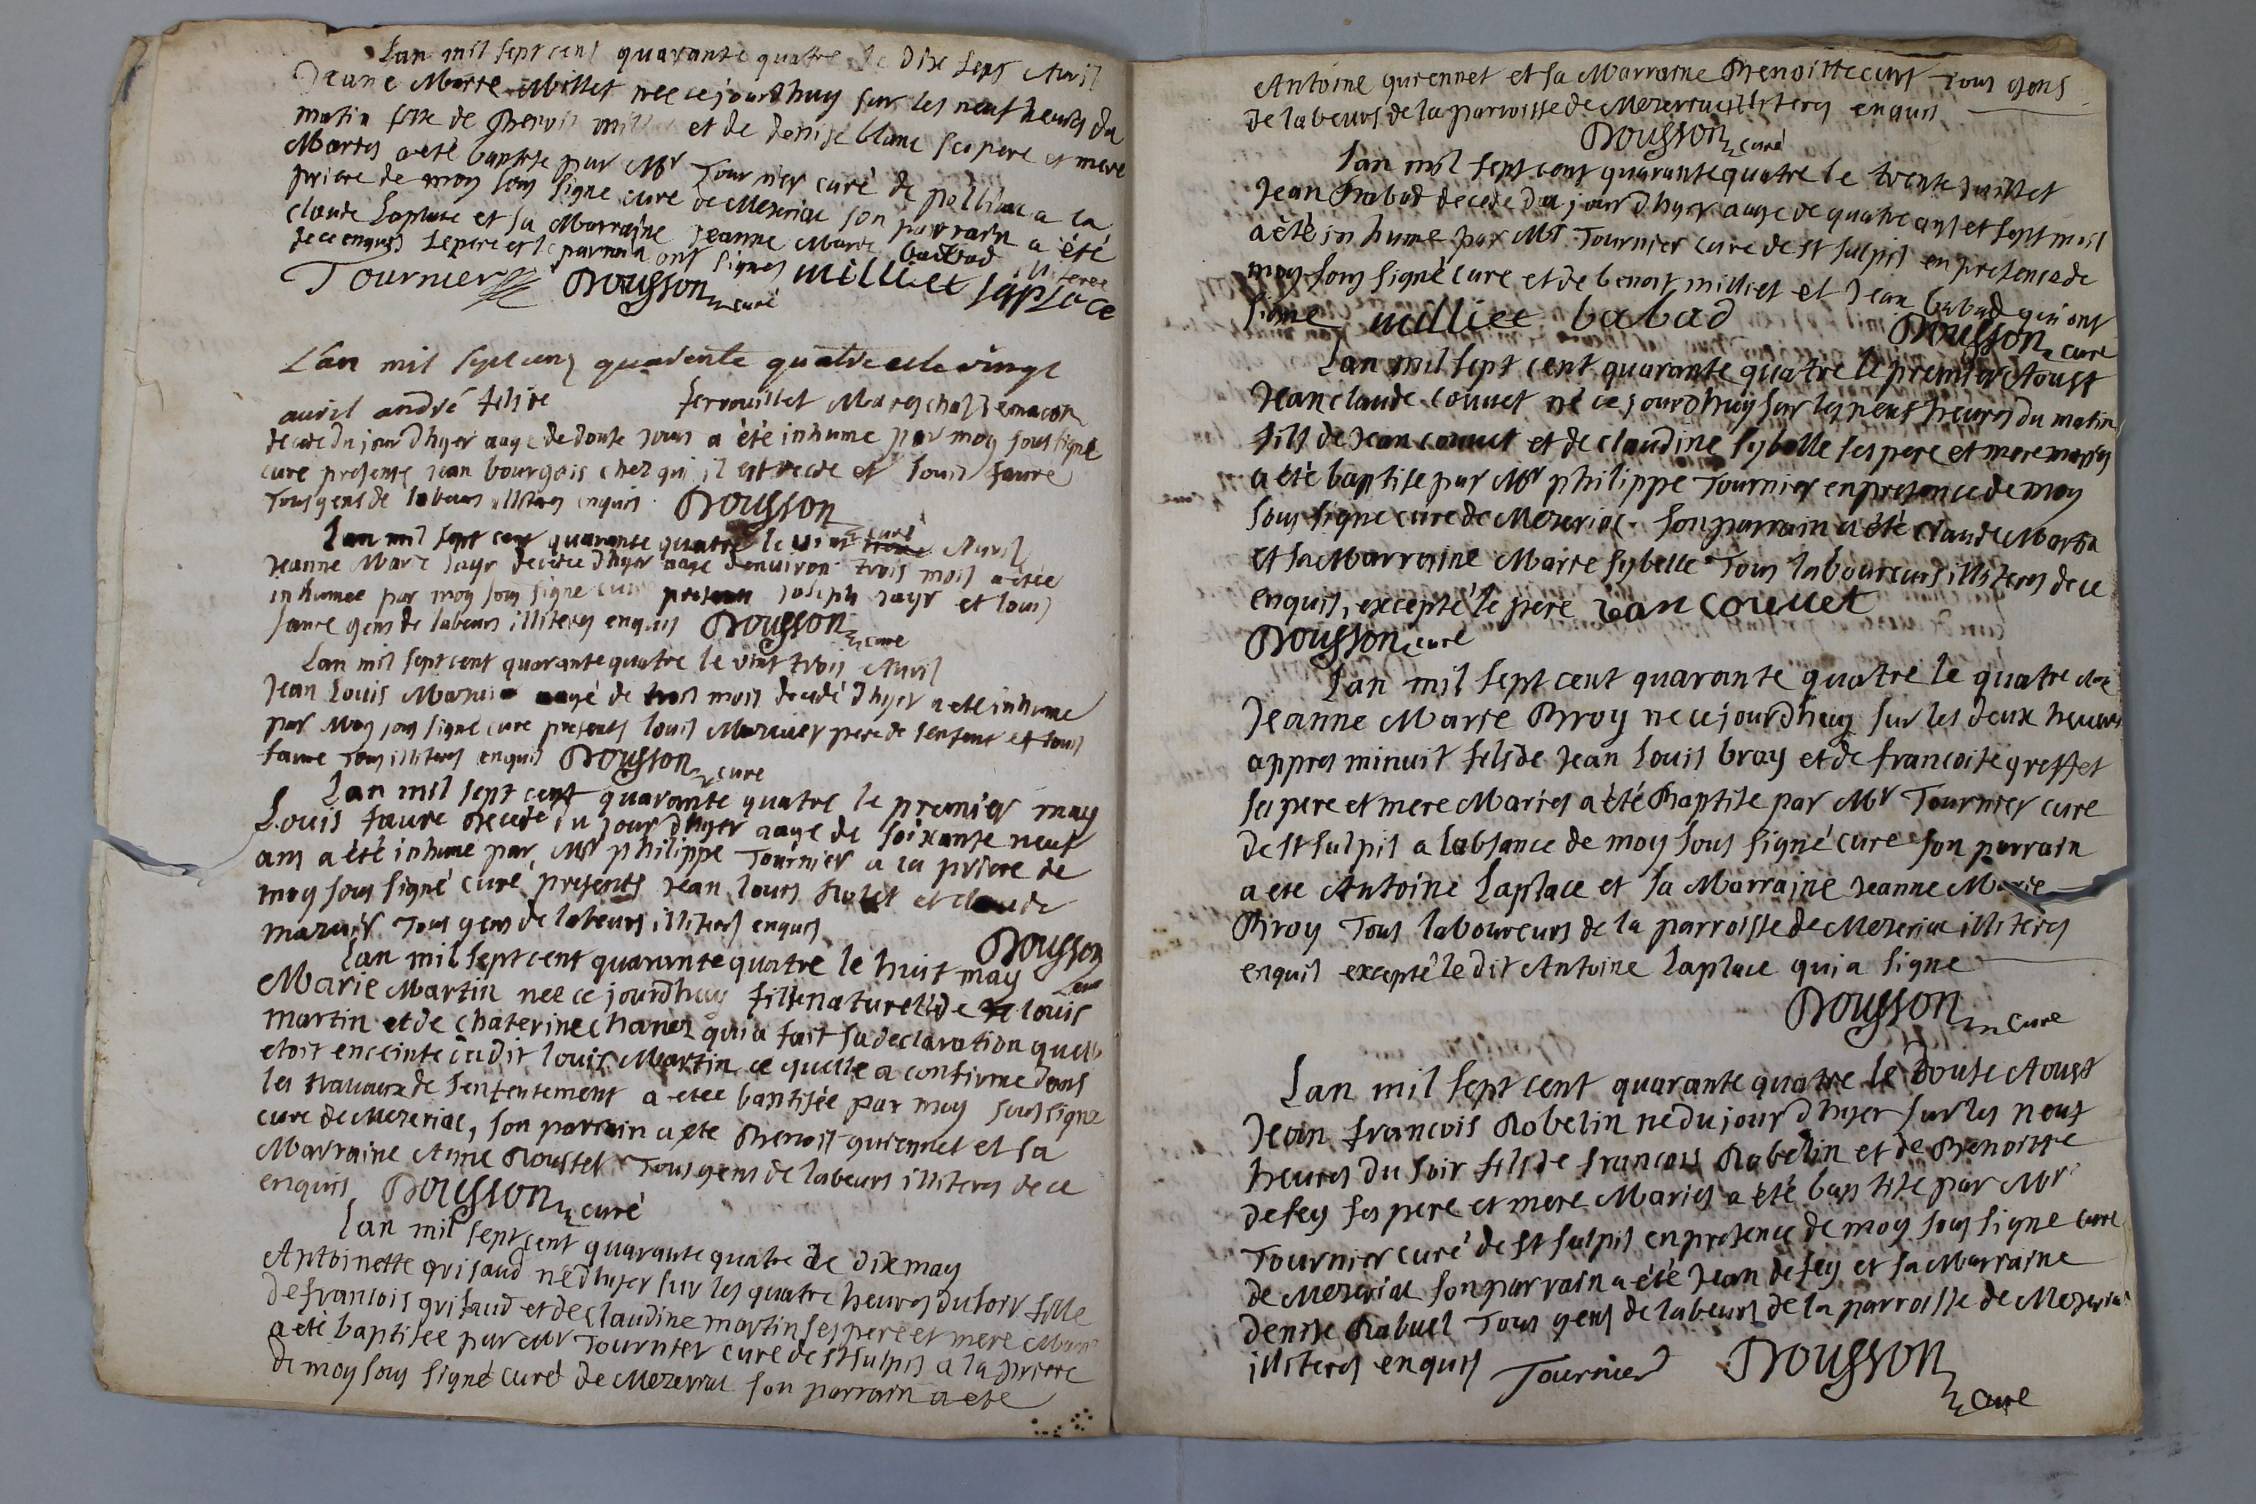 Lan mil sept cent quarante quatre le dix sept Avril
Jeane Marie Millet nee ce jourdhuy sur les neuf heures du
matin fille de Benoit millet et de denise blanc ses pere et mere
Maries a eté baptise par Mr Tournier curé de a la
priere de moy sous signe curé de Mezeriac son parrain a été
claude Laplace et sa Marraine Jeanne Marie babad illiteree
de ce enquis le pere et le parrain ont signes
Tournier Bousson curé milliet laplace
Lan mil sept cens quarente quatre et le vingt
avril andré felire fervouillet Mareschal
decede du jour dhyer aage de douse jours a été inhume par moy sous signe
cure presents jean bourgois chez qui il est decde et louis faure
Tous gens de labeurs illiteres enquis Bousson curé
Lan mil sept cent quarante quatre le vint Avril
Jeanne Marie Jayr decedee dhyer aage denviron trois mois a etée
inhumee par moy sous signe cure presents joseph Jayr et louis
faure gens de labeurs illiteres enquis Bousson cure
Lan mil sept cent quarante quatre le vint trois Avril
Jean Louis Maruier aagé de trois mois decedé dhyer a ete inhume
par moy sous signe cure presents louis Maruier pere de lenfant et louis
faure Tous illiteres enquis Bousson cure
Lan mil sept cent quarante quatre le premier may
Louis faure decede du jour dhyer aage de soixante neuf
ans a été inhume par Mr philippe Tournier a la priere de
moy sous signé curé presents Jean louis Rolet et claude
maruier Tous gens de labeurs illiteres enquis
Bousson cure
Lan mil sept cent quarante quatre le huit may
Marie Martin nee ce jourdhuy fille naturelle de louis
martin et de chaterine chanel qui a fait sa declaration quelle
etoit enceinte dudit louis Martin ce quelle a confirme dans
les travaux de lenfentement a etee baptisée par moy sous signe
cure de Mezeriac, son parrain a ete Benoit guiennet et sa
Marraine Anne Roustet Tous gens de labeurs illiteres de ce
enquis Bousson curé
Lan mil sept cent quarante quatre le dix may
Antoinette grisaud né dhyer sur les quatre heures du soir fille
de francois grisaud et de claudine martin ses pere et mere Maries
a eté baptisee par Mr Tournier cure de st sulpis a la priere
de moy sous signé curé de Mezeriac son parrain a ete
Antoine guiennet et sa Marraine Benoitte cust Tous gens
de labeurs de la parroisse de Mezeriac illiteres enquis
Bousson curé
Lan mil sept cent quarante quatre le trente Juillet
Jean Babad decede du jour dhyer aage de quatre ans et sept mois
a été inhume par Mr Tournier cure de st sulpis en presence de
moy sous signé cure et de benoit milliet et Jean babad qui ont
signe milliet babad Bousson cure
Lan mil sept cent quarante quatre le premier Aoust
Jean claude couuet né ce jourdhuy sur les neuf heures du matin
fils de Jean couuet et de claudine sybelle ses pere et mere maries
a été baptise par Mr philippe Tournier en presence de moy
sous signe cure de Mezeriac. son parrain a été claude Martin
et sa Marraine Marie sybelle Tous laboureurs illiteres de ce
enquis, excepté le pere Jean Couuet
Bousson cure
Lan mil sept cent quarante quatre le quatre
Jeanne Marie Broy ne ce jourdhuy sur les deux heures
appres minuit fils de Jean Louis broy et de francoise greffet
ses pere et mere Maries a été Baptise par Mr Tournier cure
de st sulpis a labsance de moy sous signé cure son parrain
a ete Antoine Laplace et sa Marraine Jeanne Marie
Broy Tous laboureurs de la parroisse de Mezeriac illiteres
enquis excepté le dit Antoine laplace qui a signe
Bousson cure
Lan mil sept cent quarante quatre le Douse Aoust
Jean francois Robelin ne du jour dhyer sur les neuf
heures du soir fils de francois Robelin et de Benoitte
defey ses pere et mere Maries a été baptise par Mr
Tournier curé de st sulpis en presence de moy sous signe cure
de Mezeriac son parrain a été Jean defey et sa Marraine
denise Rabuel Tous gens de labeurs de la parroisse de Mezeriac
illiteres enquis Tournier Bousson
cure